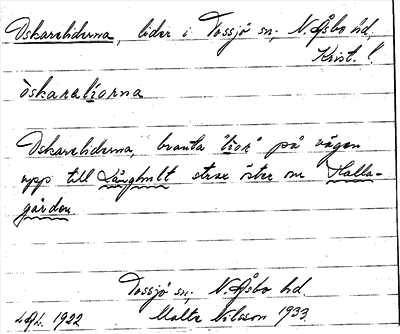 Oskaraliderna, lider i Tossjö sn, N. Åsbo hd,
Krist. l.
òskaralìorna
Oskaraliderna, branta "lior" på vägen
upp till Långhult strax öster om Halla-
gården
Tossjö sn, N. Åsbo hd.
1922 Malte Nilsson 1933.